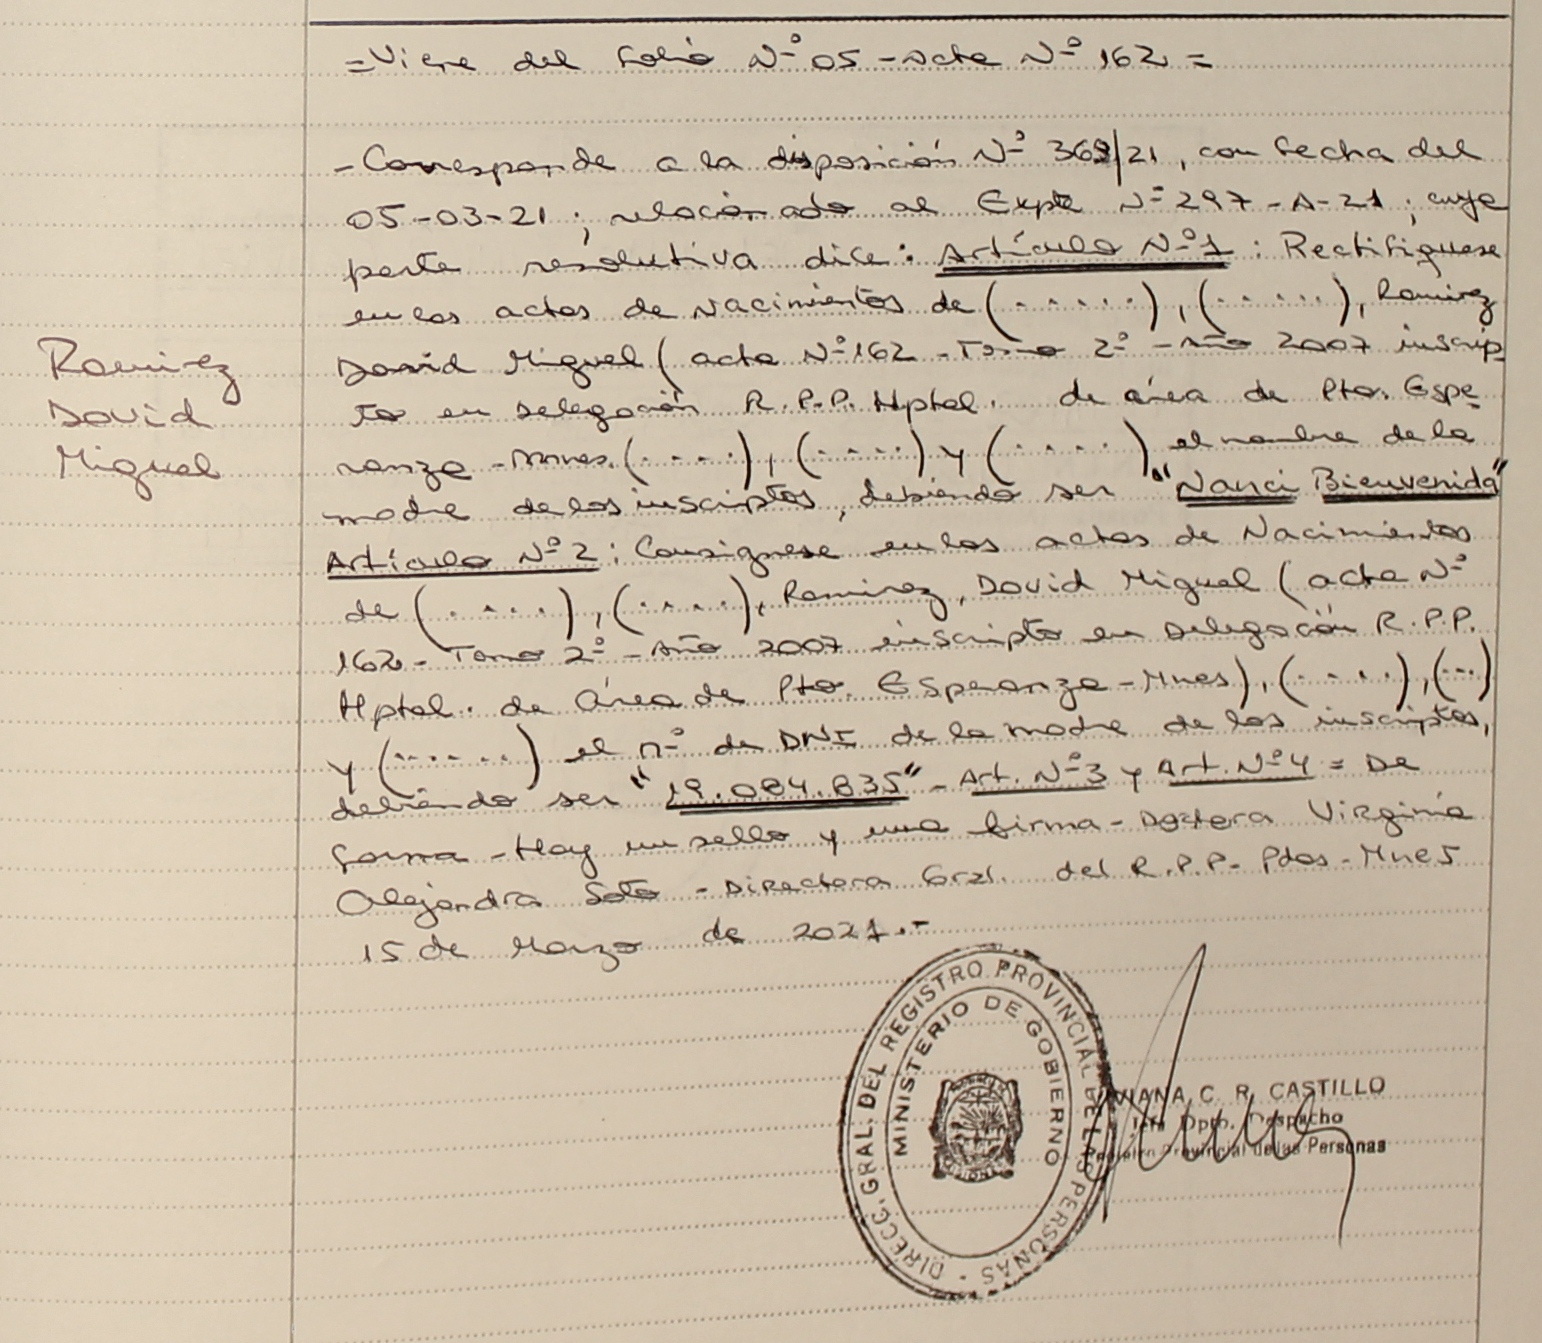 =Viene del folio Nº 05 - Acta Nº 162 =
- Corresponde a la disposición Nº 369/21, con fecha del
05-03-21; relacionado al Expte Nº 297-A-21; cuya
parte resolutiva dice: Artículo Nº 1: Rectifiquese
en las actas de Nacimientos de (.....), (.....), Ramirez
David Miguel (acta Nº 162 - Tomo 2º - Año 2007 inscrip-
to en Delegación R.P.P. Hptal. de área de Pto. Espe-
ranza - Mnes. (....), (....) y (....) el nombre de la
madre de los inscriptos, debiendo ser "Nanci Bienvenida"
Artículo Nº 2: Consignese en las actas de Nacimientos
de (....), (....), Ramirez, David Miguel (acta Nº
162 - Tomo 2º - Año 2007 inscripto en Delegación R.P.P.
Hptal. de Área de Pto. Esperanza - Mnes), (....), (...)
y (.....) el nº de DNI de la madre de los inscriptos,
debiendo ser "19.084.835" - Art. Nº 3 y Art. Nº 4 = De
forma - Hay un sello y una firma - Doctora Virginia
Alejandra Soto - Directora Gral. del R.P.P. - Pdas - Mnes
15 de Marzo de 2021.-
Ramirez
David
Miguel
DIRECC. GRAL. DEL REGISTRO PROVINCIAL DE LAS PERSONAS
MINISTERIO DE GOBIERNO
VIVIANA C. R. CASTILLO
Jefa Dpto. Despacho
Registro Provincial de las Personas